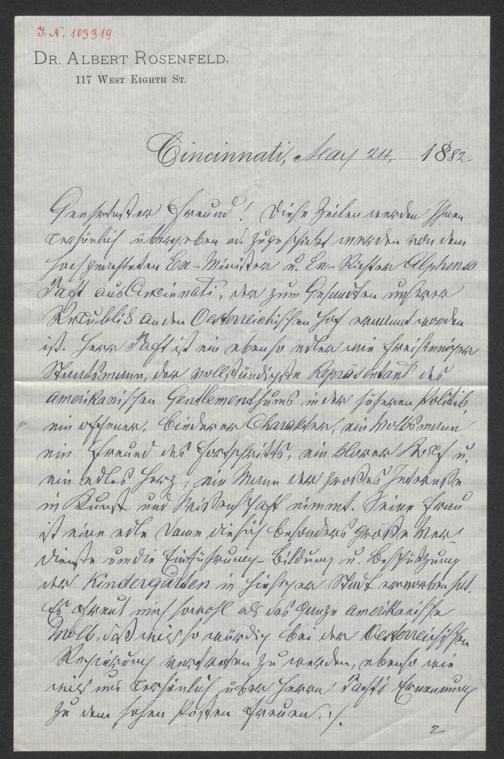 I. N. 103319
DR. ALBERT ROSENFELD,
117 WEST EIGHTH ST.
Cincinnati, May 24, 1882
Geehrtester Freund! Diese Zeilen werden Ihnen
persönlich übergeben od. zugeschickt werden von dem
hochgeachteten Ex-Minister u. Ex-Richter Alphonso
Taft aus Cincinnati, der zum Gesandten unserer
Republik an den Oesterreichischen Hof ernannt worden
ist. Herr Taft ist ein ebenso edler wie freisinniger
Staatsmann, der vollständigste Repräsentant des
amerikanischen Gentlementhums in der höheren Politik,
ein offener, biederer Charakter, ein Volksmann
ein Freund des Fortschritts, ein klarer Kopf u.
ein edles Herz; ein Mann der großes Interesse
in Kunst und Wissenschaft nimmt. Seine Frau
ist eine edle Dame die sich besonders große Ver-
dienste um die Einführung - Bildung u. Beschützung
der Kindergärten in hiesiger Stadt erworben hat.
Es freut mich sowohl als das ganze amerikanische
Volk, daß wir so würdig bei der Oesterreichischen
Regierung vertreten zu werden, ebenso wie
wir uns persönlich über Herrn Taft's Ernennung
zu dem hohen Posten freuen. :/.
2